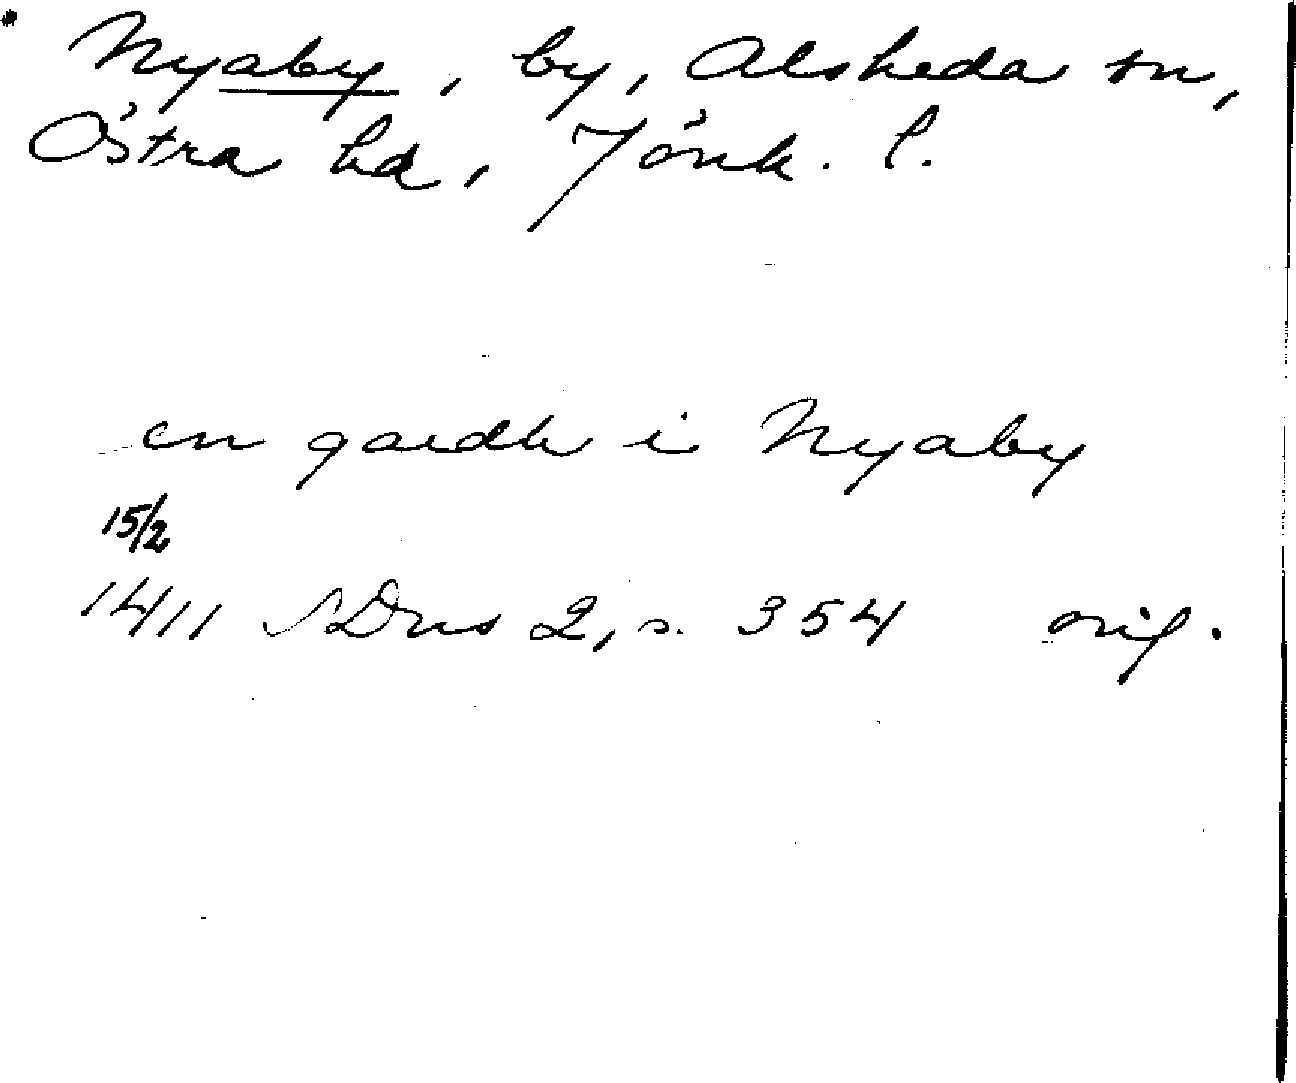 * Nyaby, by, Alsheda sn,
Östra hd, Jönk. l.
en gardh i Nyaby
15/2
1411 SDns 2, s. 354 orig.